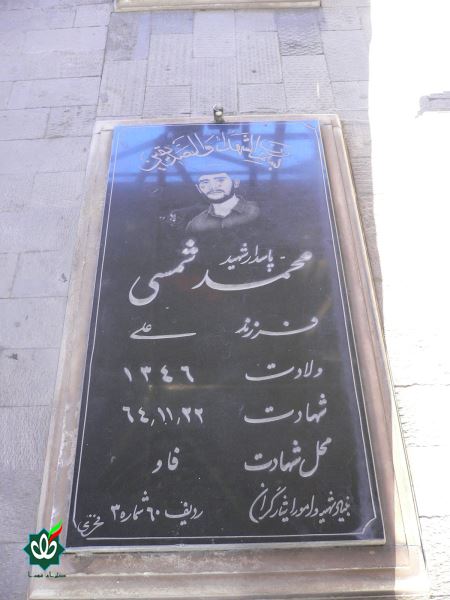 بسم رب الشهداء والصدیقین
پاسدار شهید
محمد شمسی
فرزند علی
ولادت ۱۳۴۶
شهادت ۶۴،۱۱،۲۲
محل شهادت فاو
بنیاد شهید و امور ایثارگران ردیف ۶۰ شماره ۳ فخری